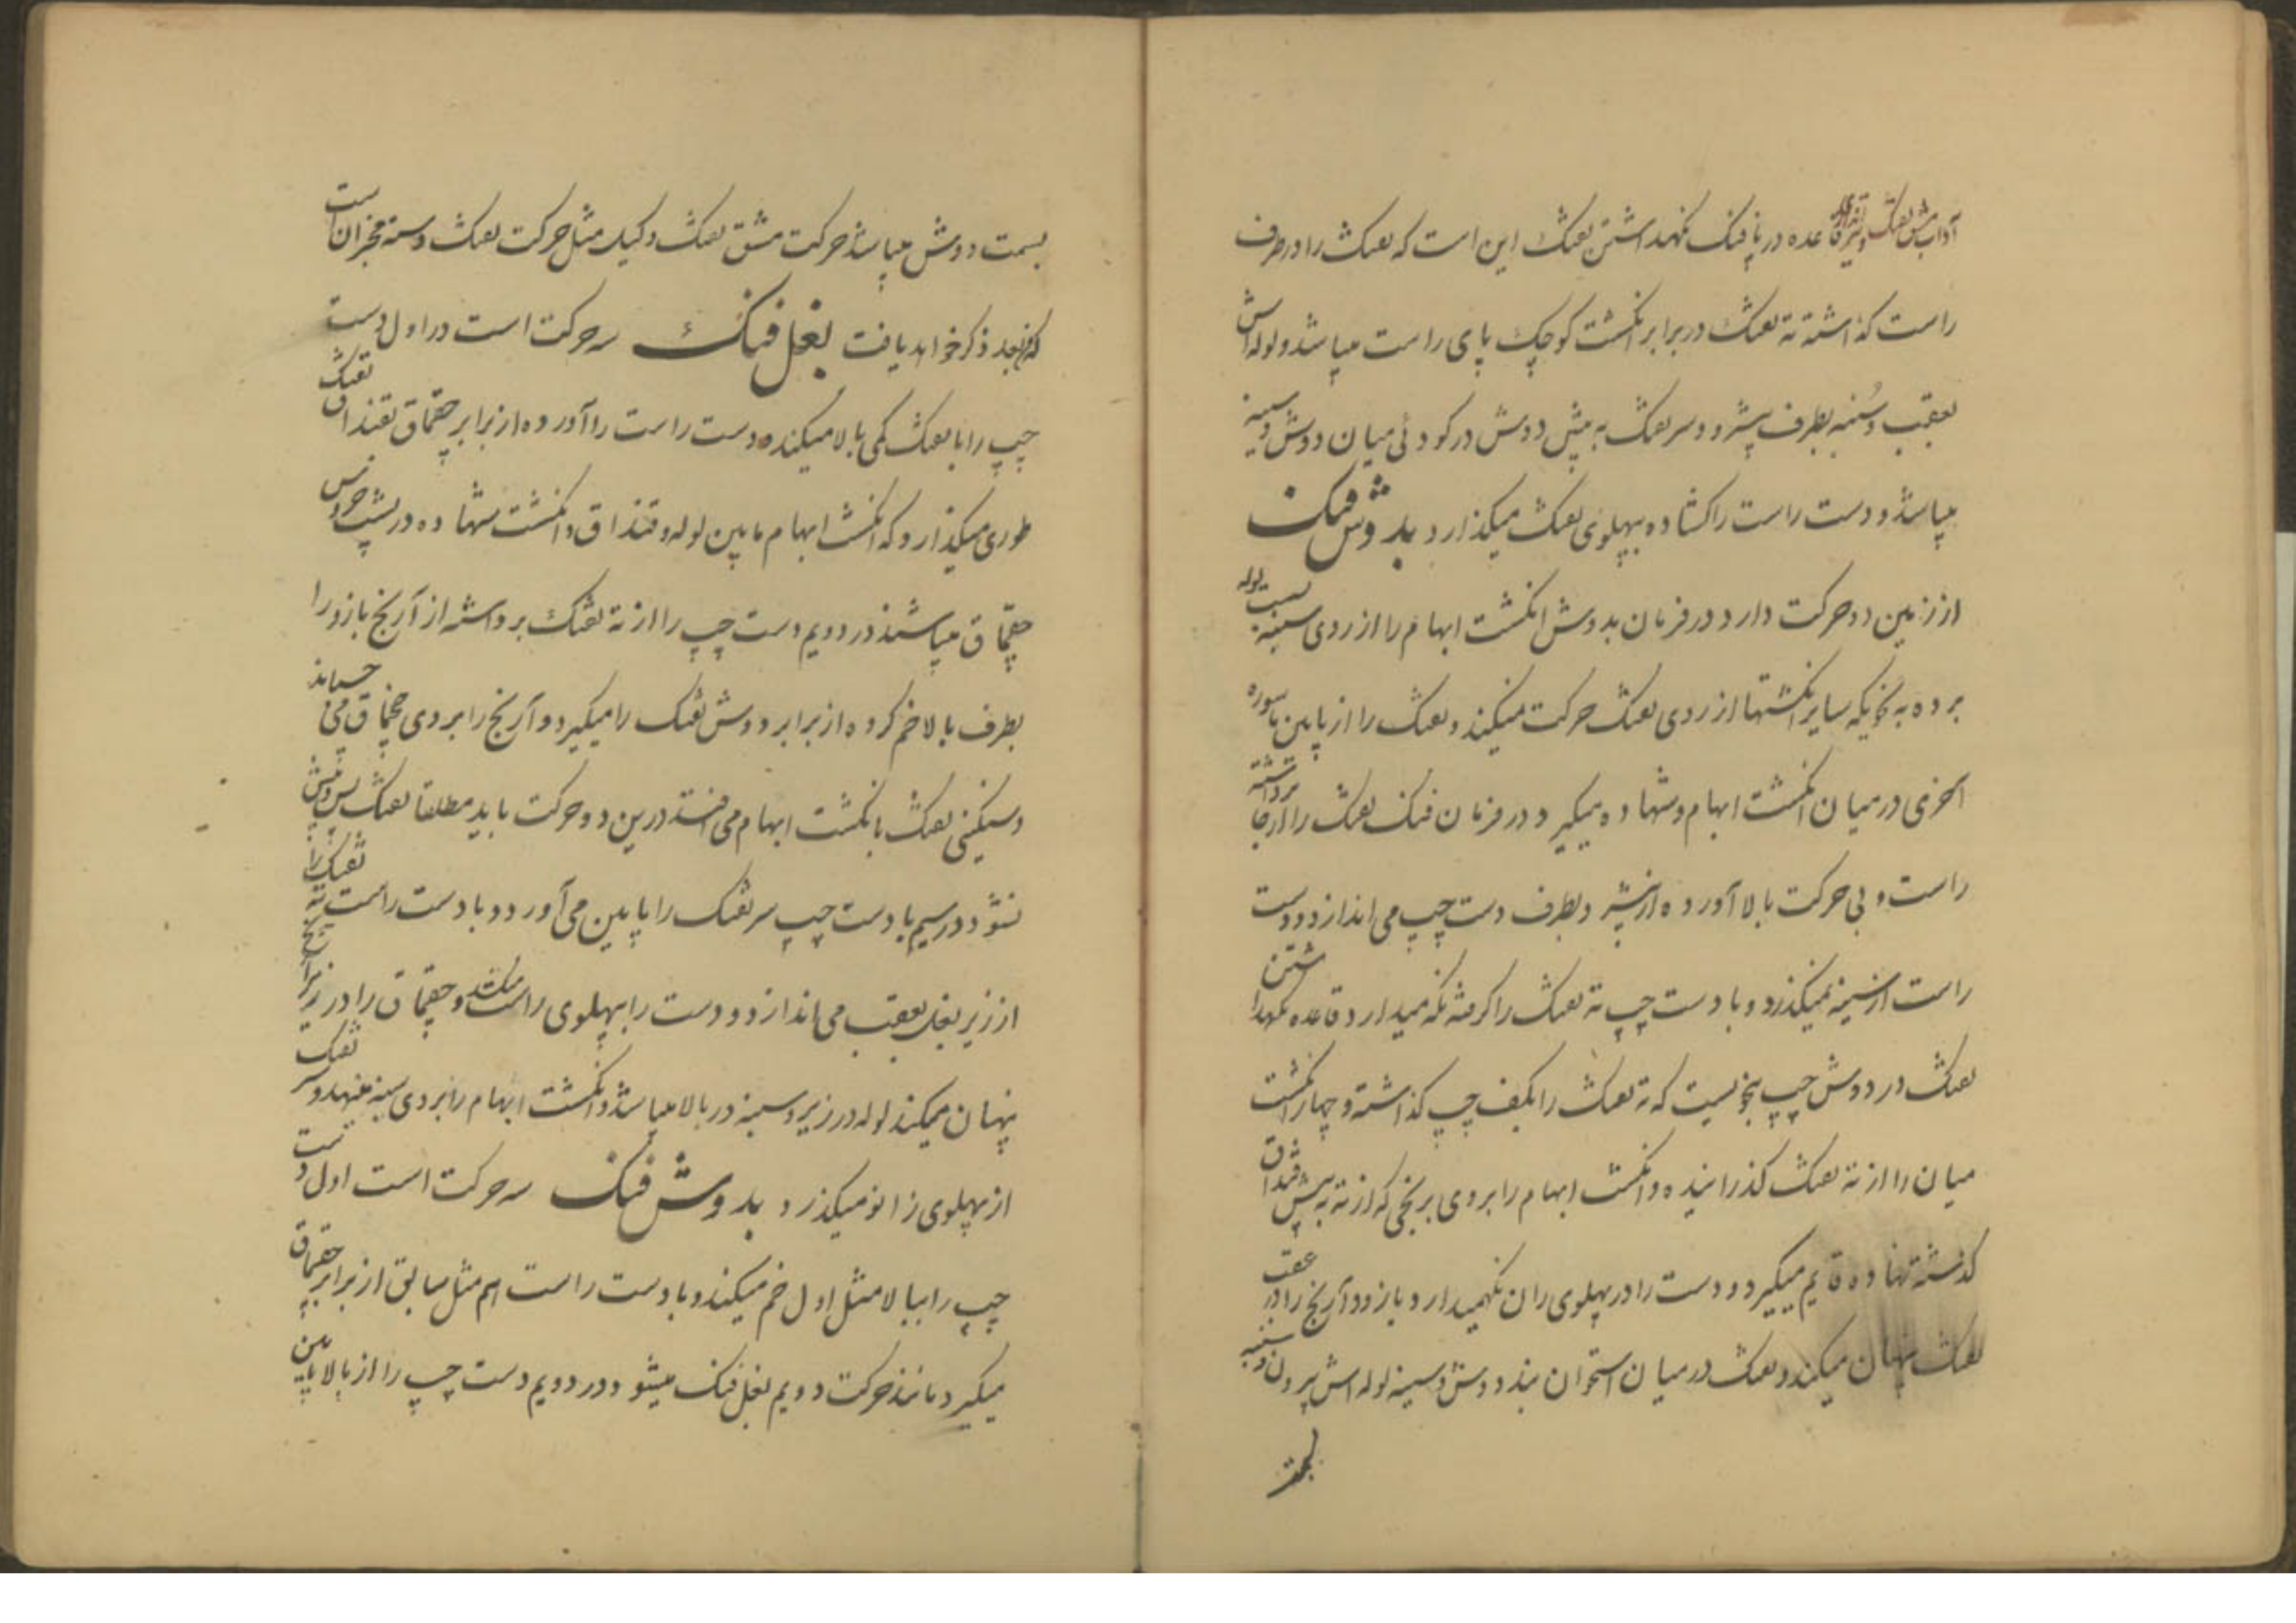 آداب مشق تفنک قاعده در پافنک نکهداشتن تفنک این است که تفنک را در طرف
راست کذاشته ته تفنک در برابر انکشت کوچک پای راست میباشد و لوله اش
بعقب و سُنبه بطرف پیش و سر تفنک به پیش دوش در کودئی میان دوش و سینه
میباشد و دست راست را کشاده بپهلوی تفنک میکذارد بدوش فنک
از زمین دو حرکت دارد در فرمان بدوش انکشت ابهام را از روی سینه بسمت لوله
برده به نحویکه سایر انکشتها از روی تفنک حرکت نمیکند و تفنک را از پایین پاسوره
آخری در میان انکشت ابهام و شهاده میکیرد و در فرمان فنک تفنک را از جا برداشته
راست و بی حرکت بالا آورده از پیش رو بطرف دست چپ می اندازد و دست
راست از سینه نمیکذرد و با دست چپ ته تفنک را کرفته نکه میدارد قاعده نکهداشتن
تفنک در دوش چپ بنحویست که ته تفنک را بکف چپ کذاشته و چهار انکشت
میان را از ته تفنک کذرانیده و انکشت ابهام را بر روی برنجی که از ته به پیش قنداق
کذشته نهاده قایم میکیرد و دست را در پهلوی ران نکهمیدارد و بازو و آرنج را در عقب
تفنک پنهان میکند و تفنک در میان استخوان بند دوش و سینه لوله اش بیرون و سنبه
بسمت
بسمت دوش میباشد حرکت مشق تفنک وکیل مثل حرکت تفنک دسته مخبران است
که من بعد ذکر خواهد یافت بغل فنک سه حرکت است در اول دست
چپ را با تفنک کمی بالا میکند و دست راست را آورده از برابر چقماق بقنداق تفنک
طوری میکذارد که انکشت ابهام مابین لوله و قنداق و انکشت شهاده در پشت خروس
چقماق میباشند در دویم دست چپ را از ته تفنک برداشته از آرنج بازو را
بطرف بالا خم کرده از برابر دوش تفنک را میکیرد و آرنج را بر روی چقماق می چسباند
و سنکینی تفنک بانکشت ابهام می افتد درین دو حرکت باید مطلقا تفنک پس و پیش
نشود در سیم با دست چپ سر تفنک را پایین می آورد و با دست راست ته تفنک را
از زیر بغل بعقب می اندازد و دست را بپهلوی راست میکشد و چقماق را در زیر آرنج
پنهان میکند لوله در زیر و سینه در بالا میباشد و انکشت ابهام را بر روی سینه مینهد و سر تفنک
از پهلوی زانو میکذرد بدوش فنک سه حرکت است اول دست
چپ را ببالا مثل اول خم میکند و با دست راست هم مثل سابق از برابر چقماق
میکیرد مانند حرکت دویم بغل فنک میشود در دویم دست چپ را از بالا پایین